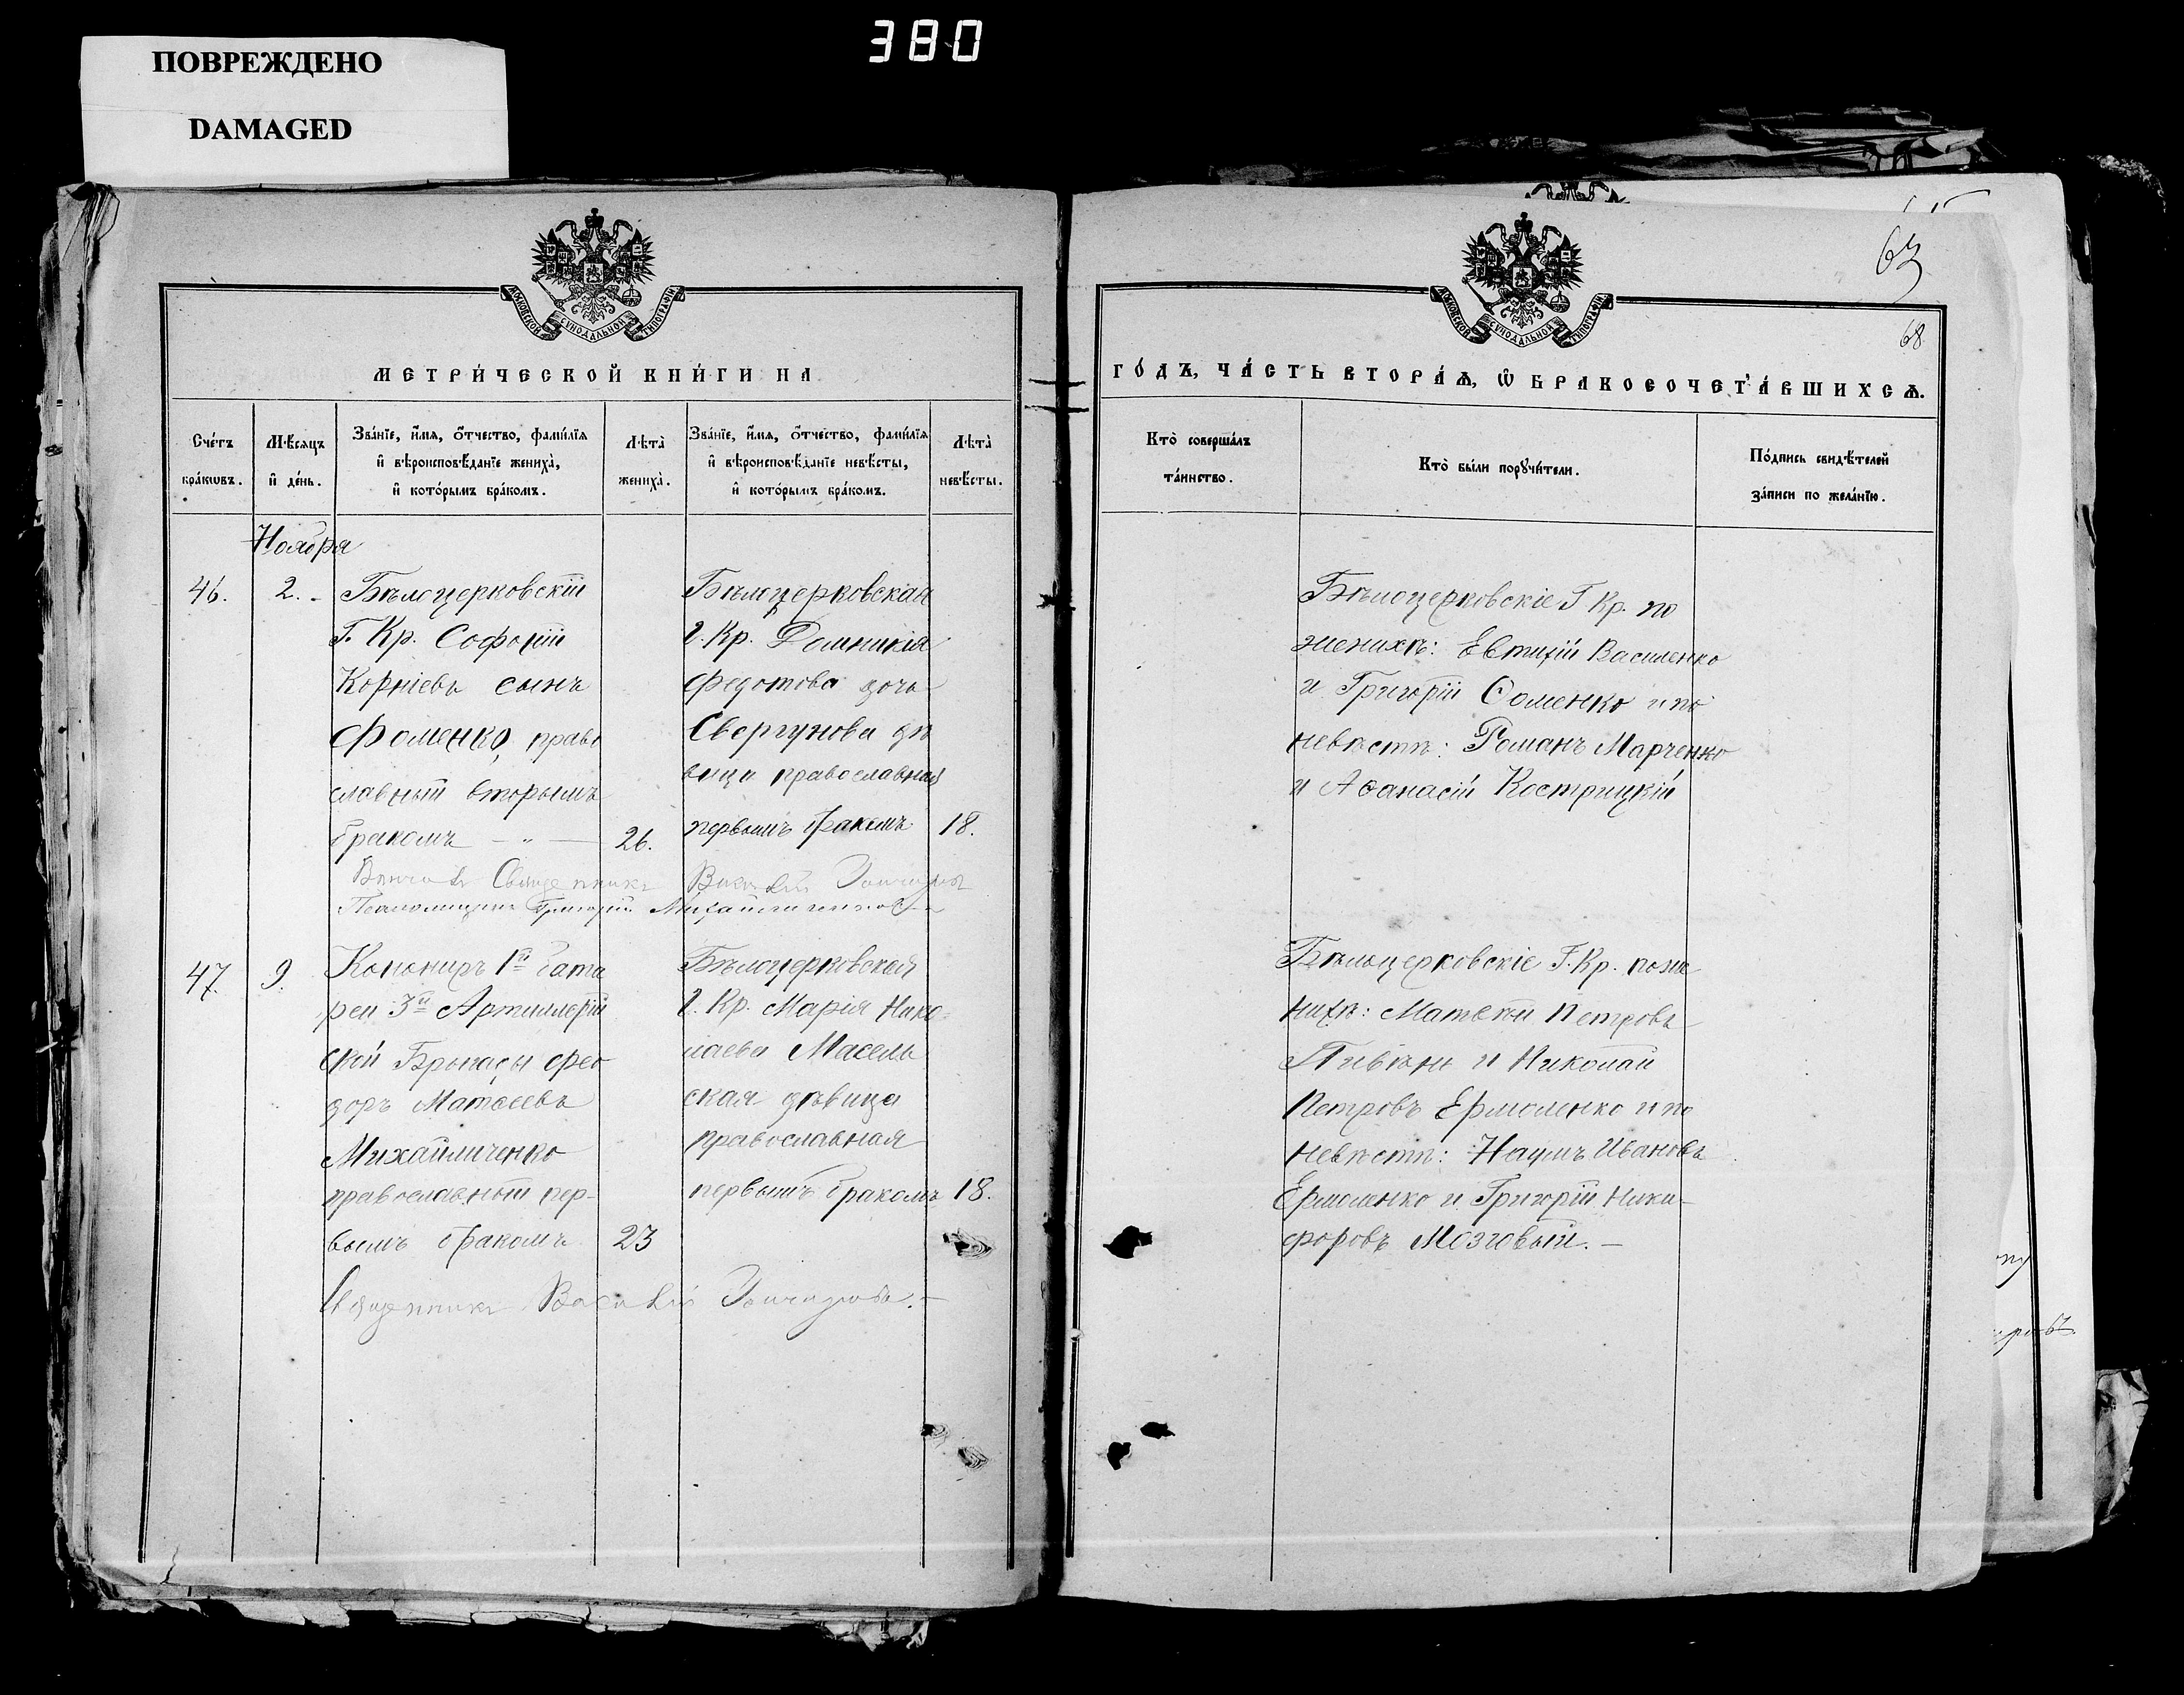 380
ПОВРЕЖДЕНО
DAMAGED
МОСКОВСКОЙ СѴНОДАЛЬНОЙ ТИПОГРАФІИ
МЕТРИ́ЧЕСКОЙ КНИ́ГИ НА
Сче́тъ бра́кѡвъ.
Мѣ́сяцъ и҆ де́нь.
Зва́нїе, и҆́мѧ, ѻ҆́тчество, фамилїѧ
и҆ вѣроисповѣ́данїе жениха̀,
и҆ кото́рымъ бра́комъ.
Лѣта̀ жениха̀.
Зва́нїе, и҆́мѧ, ѻ҆́тчество, фамилїѧ
и҆ вѣроисповѣ́данїе невѣ́сты,
и҆ кото́рымъ бра́комъ.
Лѣта̀ невѣ́сты.
Ноября
46.
2.
Бѣлоцерковскій
Г. Кр. Софоній
Корніевъ сынъ
Фоменко, право
славный вторымъ
бракомъ — „ —
26.
Бѣлоцерковская
Г. Кр. Домникія
Федотова дочь
Свергунова дѣ
вица православная
первымъ бракомъ
18.
Вѣнчалъ Священникъ Василій
Псаломщикъ Григорій
47.
9.
Кононир 1й бата
реи 3й Артиллерій
ской Бригады Фео
доръ Матѳеевъ
Михайличенко
православный пер-
вымъ бракомъ
23
Бѣлоцерковской
Г. Кр. Марія Нико=
лаева Масель
ская дѣвица
православная
первымъ бракомъ
18.
Священникъ Василій
63
68
МОСКОВСКОЙ СѴНОДАЛЬНОЙ ТИПОГРАФІИ
ГО́ДЪ, ЧА́СТЬ ВТОРА́Ѧ, Ѡ҆ БРАКОСОЧЕТА́ВШИХСѦ.
Кто̀ соверша́лъ
та́инство.
Кто̀ бы́ли порꙋчи́тели.
По́дпись свидѣ́телей
за́писи по жела́нїю.
Бѣлоцерковскіе Г. Кр. по
женихѣ: Евтихій Василенко
и Григорій Фоменко и по
невѣстѣ: Романъ Марченко
и Аѳанасій Кострицкій
Бѣлоцерковскіе Г. Кр. по же
нихѣ: Матвѣй Петровъ
Пивень и Николай
Петровъ Ермоленко и по
невѣстѣ: Наумъ Ивановъ
Ермоленко и Григорій Ники-
форовъ Мозговый. —